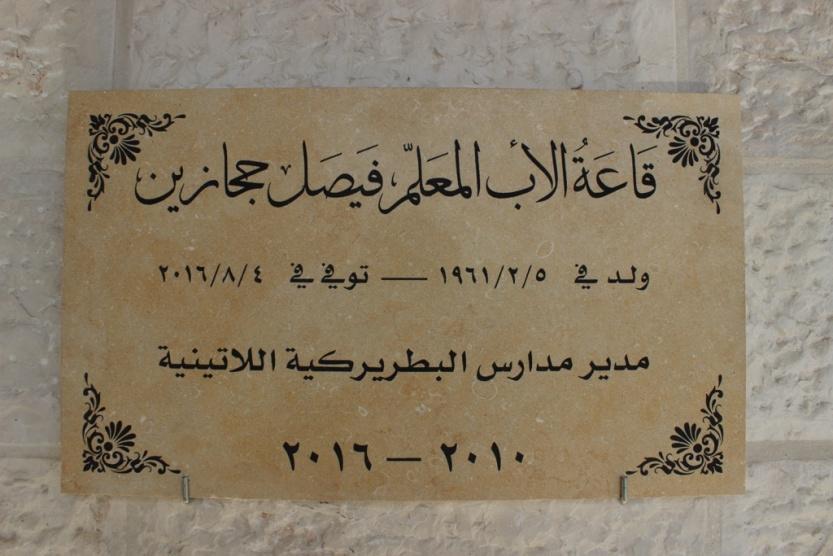 قَاعَةُ الأب المعَلّم فَيصَل حجازين
ولد في ١٩٦١/٢/٥ — توفي في ٢٠١٦/٨/٤
مدير مدارس البطريركية اللاتينية
٢٠١٠ — ٢٠١٦